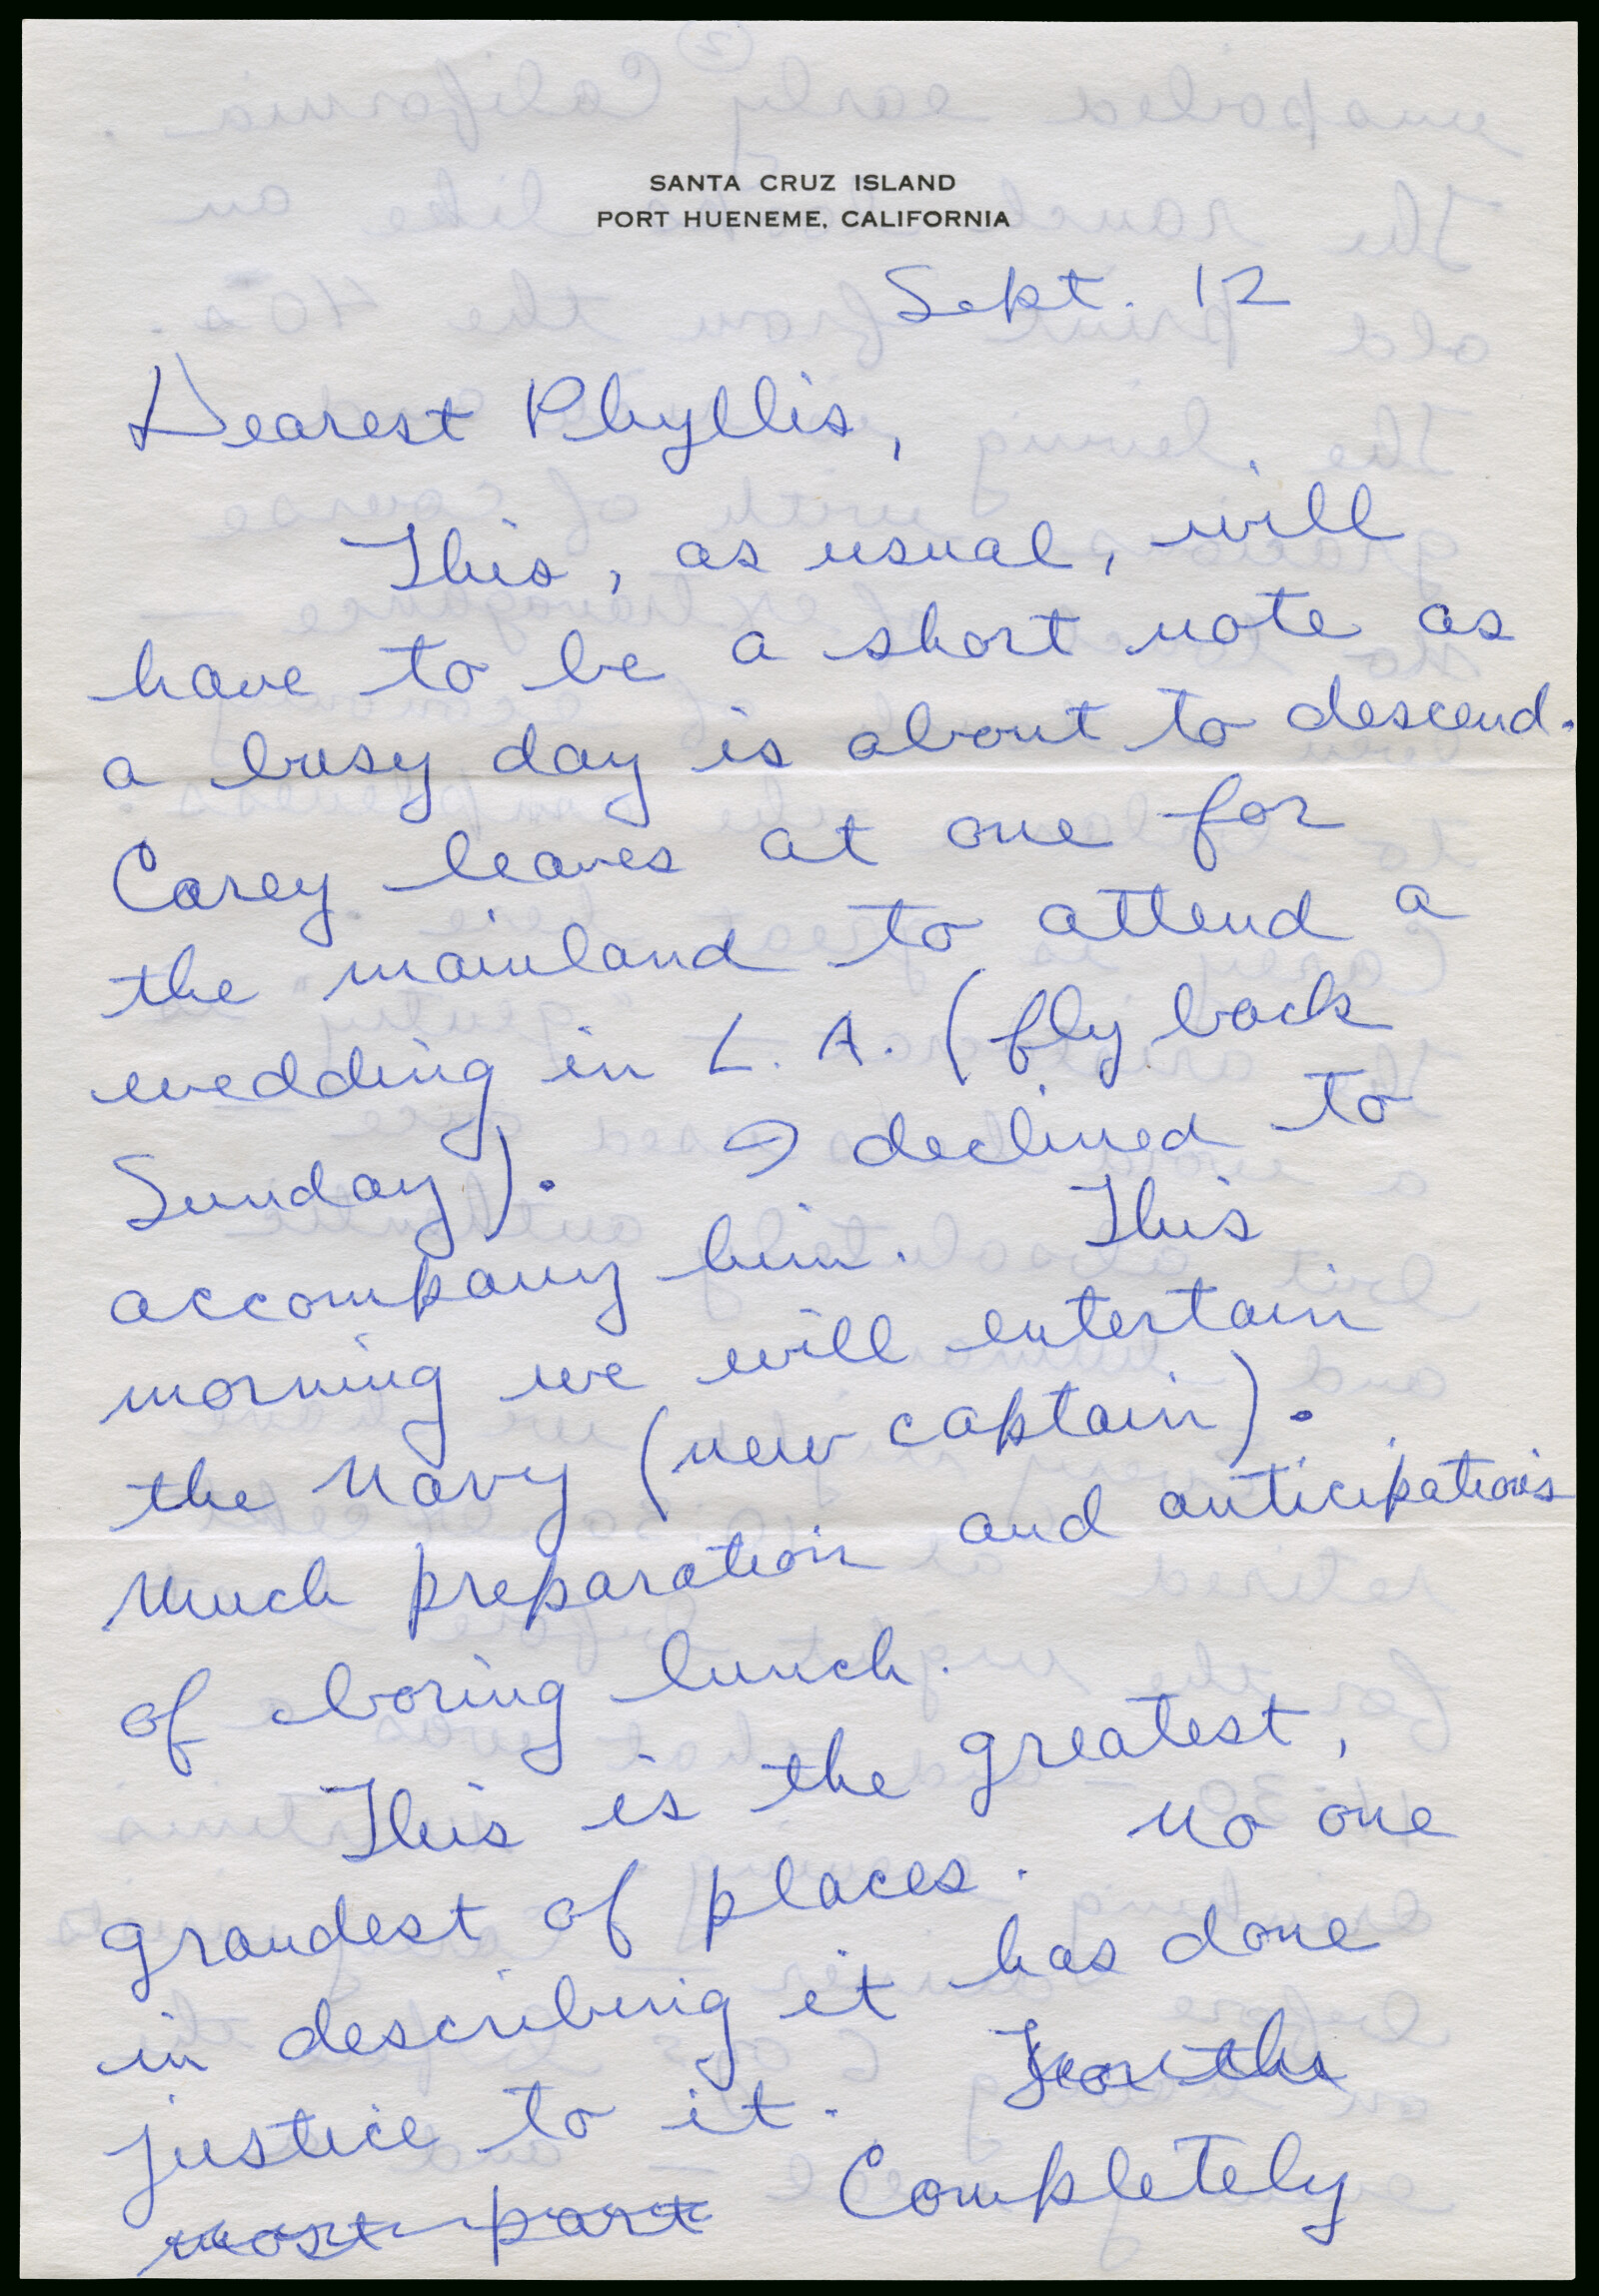 SANTA CRUZ ISLAND
PORT HUENEME, CALIFORNIA
Sept. 12
Dearest Phyllis,
This, as usual, will
have to be a short note as
a busy day is about to descend.
Carey leaves at one for
the mainland to attend a
wedding in L. A. (fly back
Sunday). I declined to
accompany him. This
morning we will entertain
the Navy (new captain).
Much preparation and anticipations
of boring lunch.
This is the greatest,
grandest of places. No one
in describing it has done
justice to it. For the
most part Completely